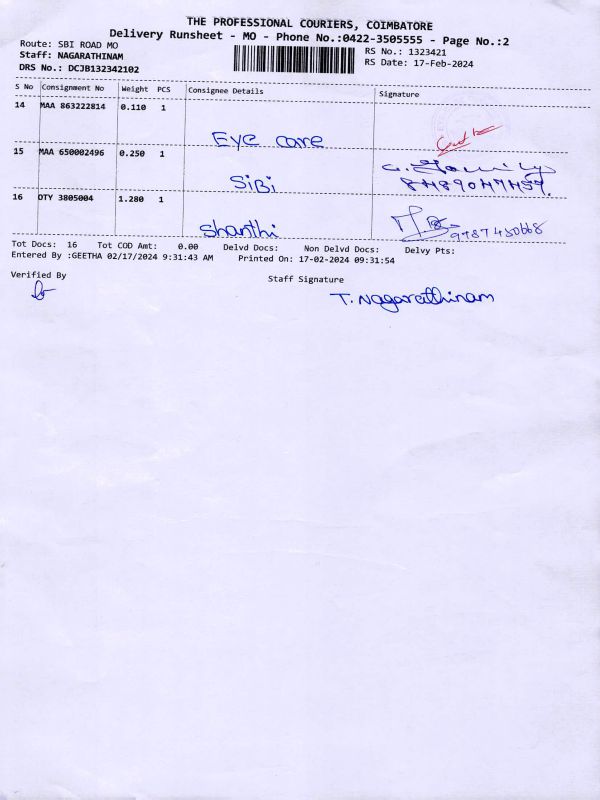 THE PROFESSIONAL COURIERS, COIMBATORE
Delivery Runsheet - MO - Phone No.:0422-3505555 - Page No.:2
Route: SBI ROAD MO
Staff: NAGARATHINAM
DRS No.: DCJB132342102
RS No.: 1323421
RS Date: 17-Feb-2024
S No Consignment No Weight PCS Consignee Details Signature
14 MAA 863222814 0.110 1
Eye care
15 MAA 650002496 0.250 1
SiBi
16 OTY 3805004 1.280 1
Shanthi
Tot Docs: 16 Tot COD Amt: 0.00 Delvd Docs: Non Delvd Docs: Delvy Pts:
Entered By :GEETHA 02/17/2024 9:31:43 AM Printed On: 17-02-2024 09:31:54
Verified By
Staff Signature
T. Nagarathinam